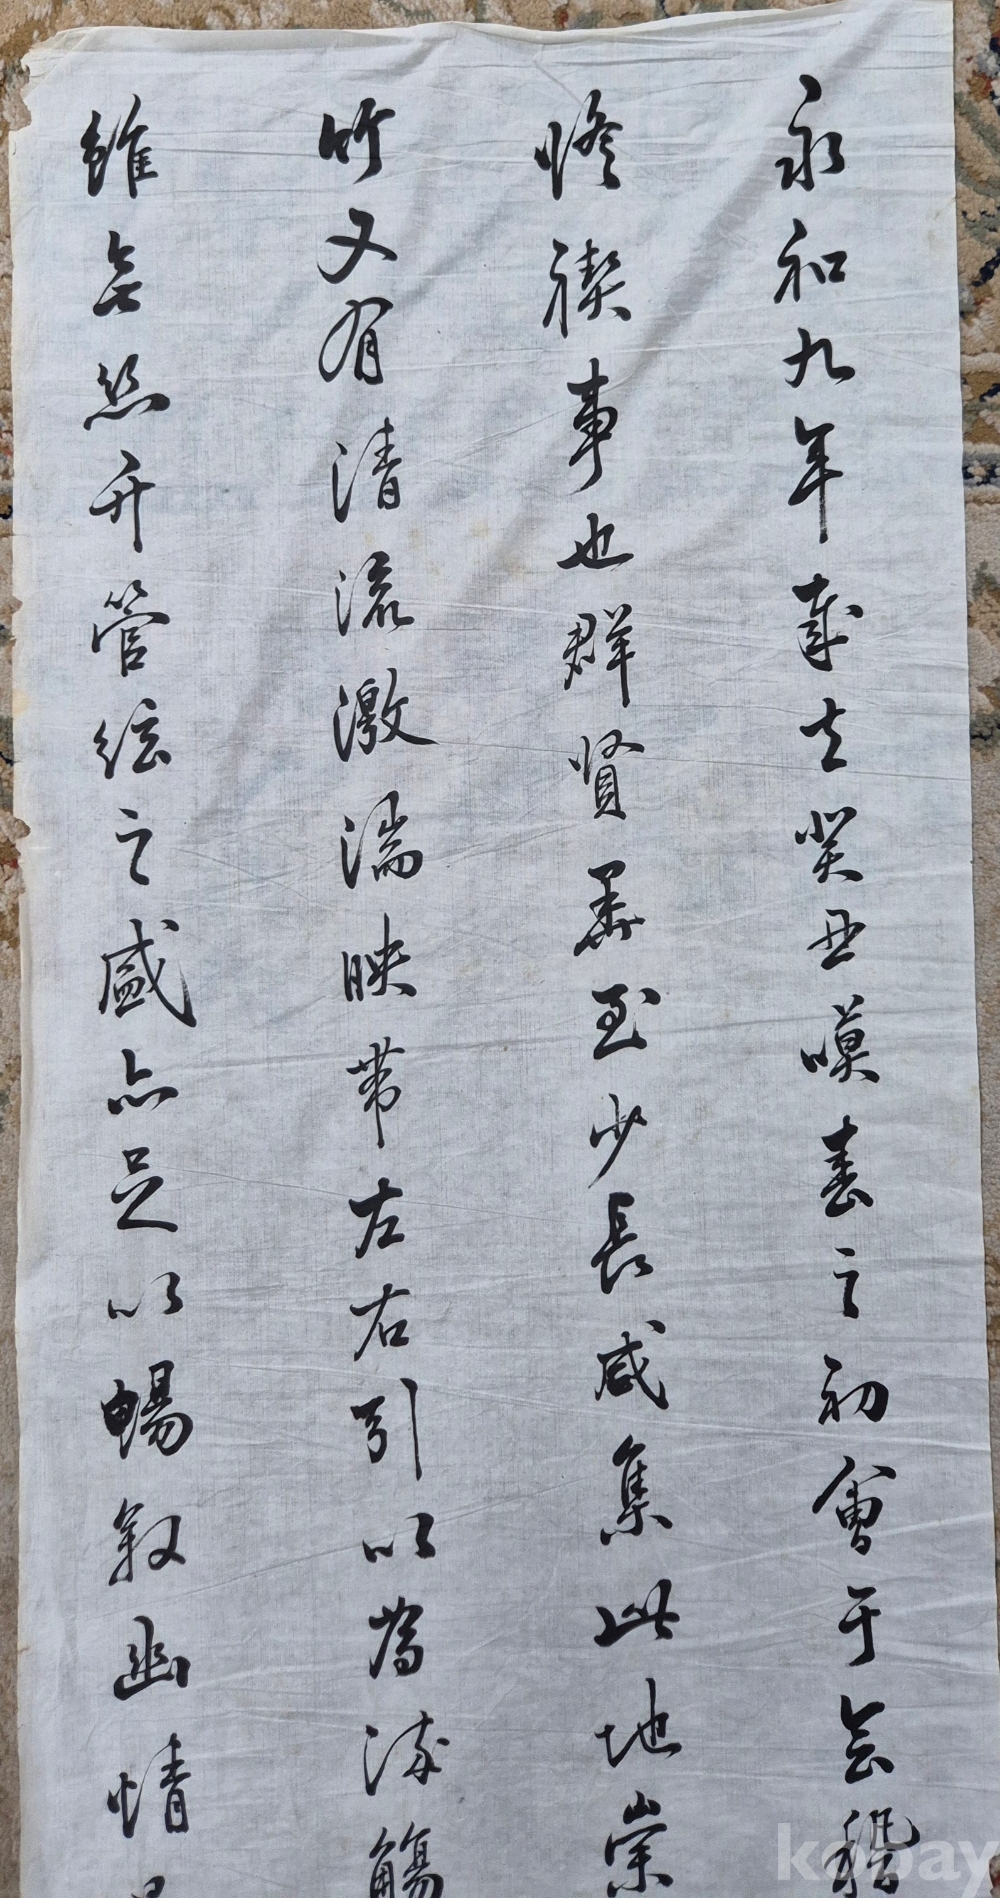 永和九年歲在癸丑暮春之初會于会稽
脩禊事也群賢畢至少長咸集此地崇
竹又有清流激湍映帶左右引以為流觴
雖無絲竹管絃之盛亦足以暢敘幽情
kobay